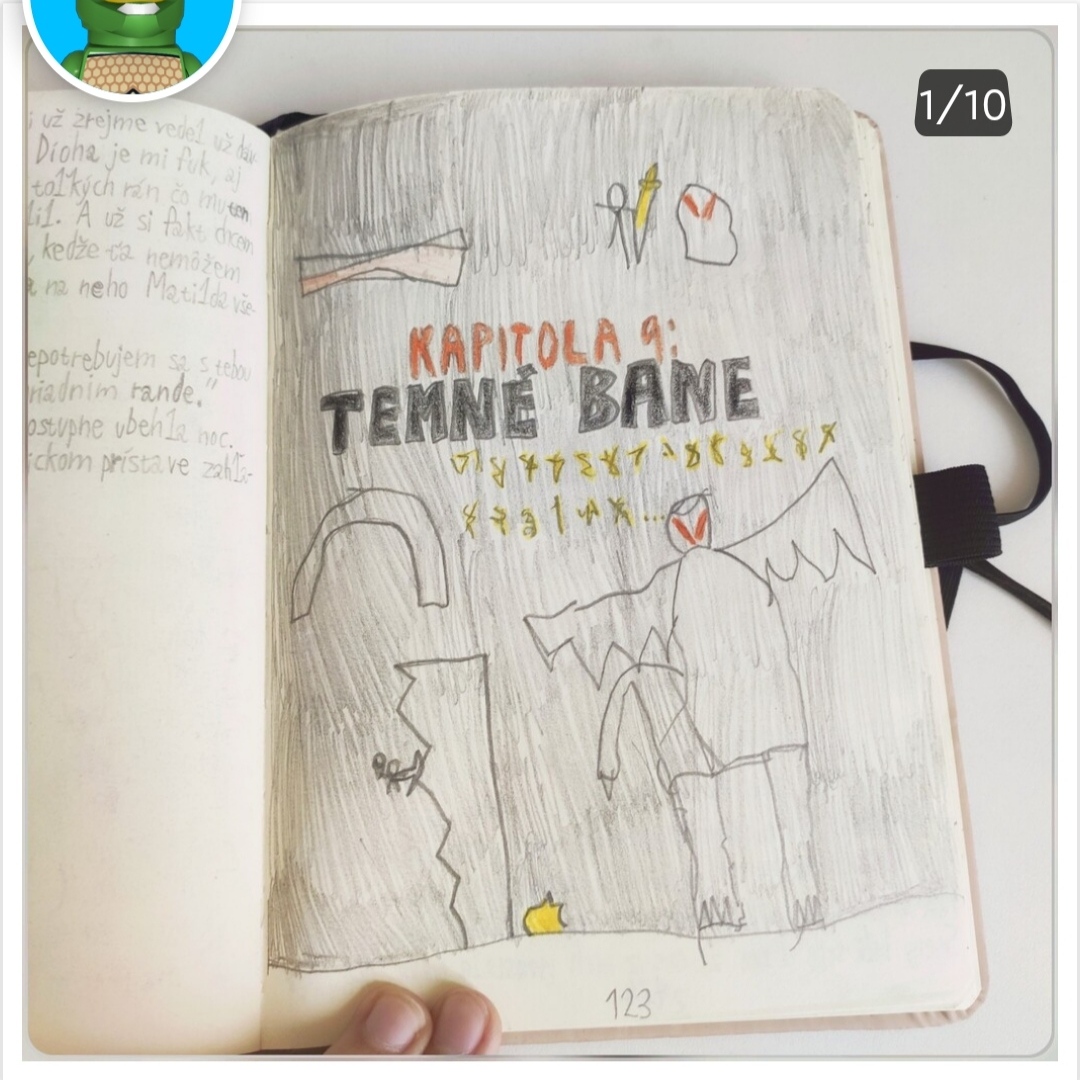 1/10
i už zrejme vedel už dáv-
Dioha je mi fuk, aj
toľkých rán čo mu ten
lil. A už si fakt
, kedže ťa nemôžem
a na neho Matilda vše-
epotrebujem sa s tebou
riadnim rande."
ostupne ubehla noc.
ickom prístave zahla-
KAPITOLA 9:
TEMNÉ BANE
123